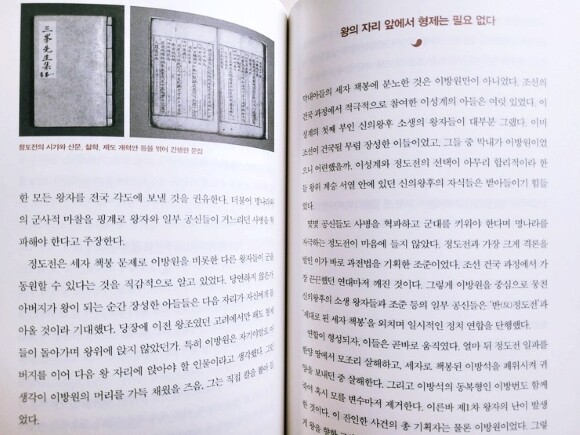 三峯先生集
정도전의 시가와 산문, 철학, 제도 개혁안 등을 엮어 간행한 문집
한 모든 왕자를 전국 각도에 보낼 것을 권유한다. 더불어 명나라와
의 군사적 마찰을 핑계로 왕자와 일부 공신들이 거느리던 사병을 혁
파해야 한다고 주장한다.
정도전은 세자 책봉 문제로 이방원을 비롯한 다른 왕자들이 군을
동원할 수 있다는 것을 직감적으로 알고 있었다. 당연하지 않은가
아버지가 왕이 되는 순간 장성한 아들들은 다음 자리가 자신에게 돌
아올 것이라 기대했다. 당장에 이전 왕조였던 고려에서만 해도 형제
들이 돌아가며 왕위에 앉지 않았던가. 특히 이방원은 자기야말로 아
버지를 이어 다음 왕 자리에 앉아야 할 인물이라고 생각했다. 그
생각이 이방원의 머리를 가득 채웠을 즈음, 그는 직접 칼을 뽑아
었다.
왕의 자리 앞에서 형제는 필요 없다
막내아들의 세자 책봉에 분노한 것은 이방원만이 아니었다. 조선의
건국 과정에서 적극적으로 참여한 이성계의 아들은 여럿 있었다. 이
성계의 첫째 부인 신의왕후 소생의 왕자들이 대부분 그랬다. 이미
조선이 건국될 무렵 장성한 이들이었고, 그들 중 막내가 이방원이었
으니 어련했을까. 이성계와 정도전의 선택이 아무리 합리적이라 한
들 왕위 계승 서열 안에 있던 신의왕후의 자식들은 받아들이기 힘들
었다.
몇몇 공신들도 사병을 혁파하고 군대를 키워야 한다며 명나라를
자극하는 정도전이 마음에 들지 않았다. 정도전과 가장 크게 격돌을
벌인 이가 바로 과전법을 기획한 조준이었다. 조선 건국 과정에서 가
장 끈끈했던 연대마저 깨진 것이다. 그렇게 이방원을 중심으로 뭉친
신의왕후의 소생 왕자들과 조준 등의 일부 공신들은 ‘반(反)정도전’과
‘제대로 된 세자 책봉’을 외치며 일시적인 정치 연합을 단행했다.
연합이 형성되자, 이들은 곧바로 움직였다. 얼마 뒤 정도전 일파를
한양 땅에서 모조리 살해하고, 세자로 책봉된 이방석을 폐위시켜 귀
양을 보내던 중 살해한다. 그리고 이방석의 동복형인 이방번도 함께
하여 혹시 모를 변수마저 제거한다. 이른바 제1차 왕자의 난이 발생
한 것이다. 이 잔인한 사건의 총 기획자는 물론 이방원이었다. 그렇
게 왕을 향한